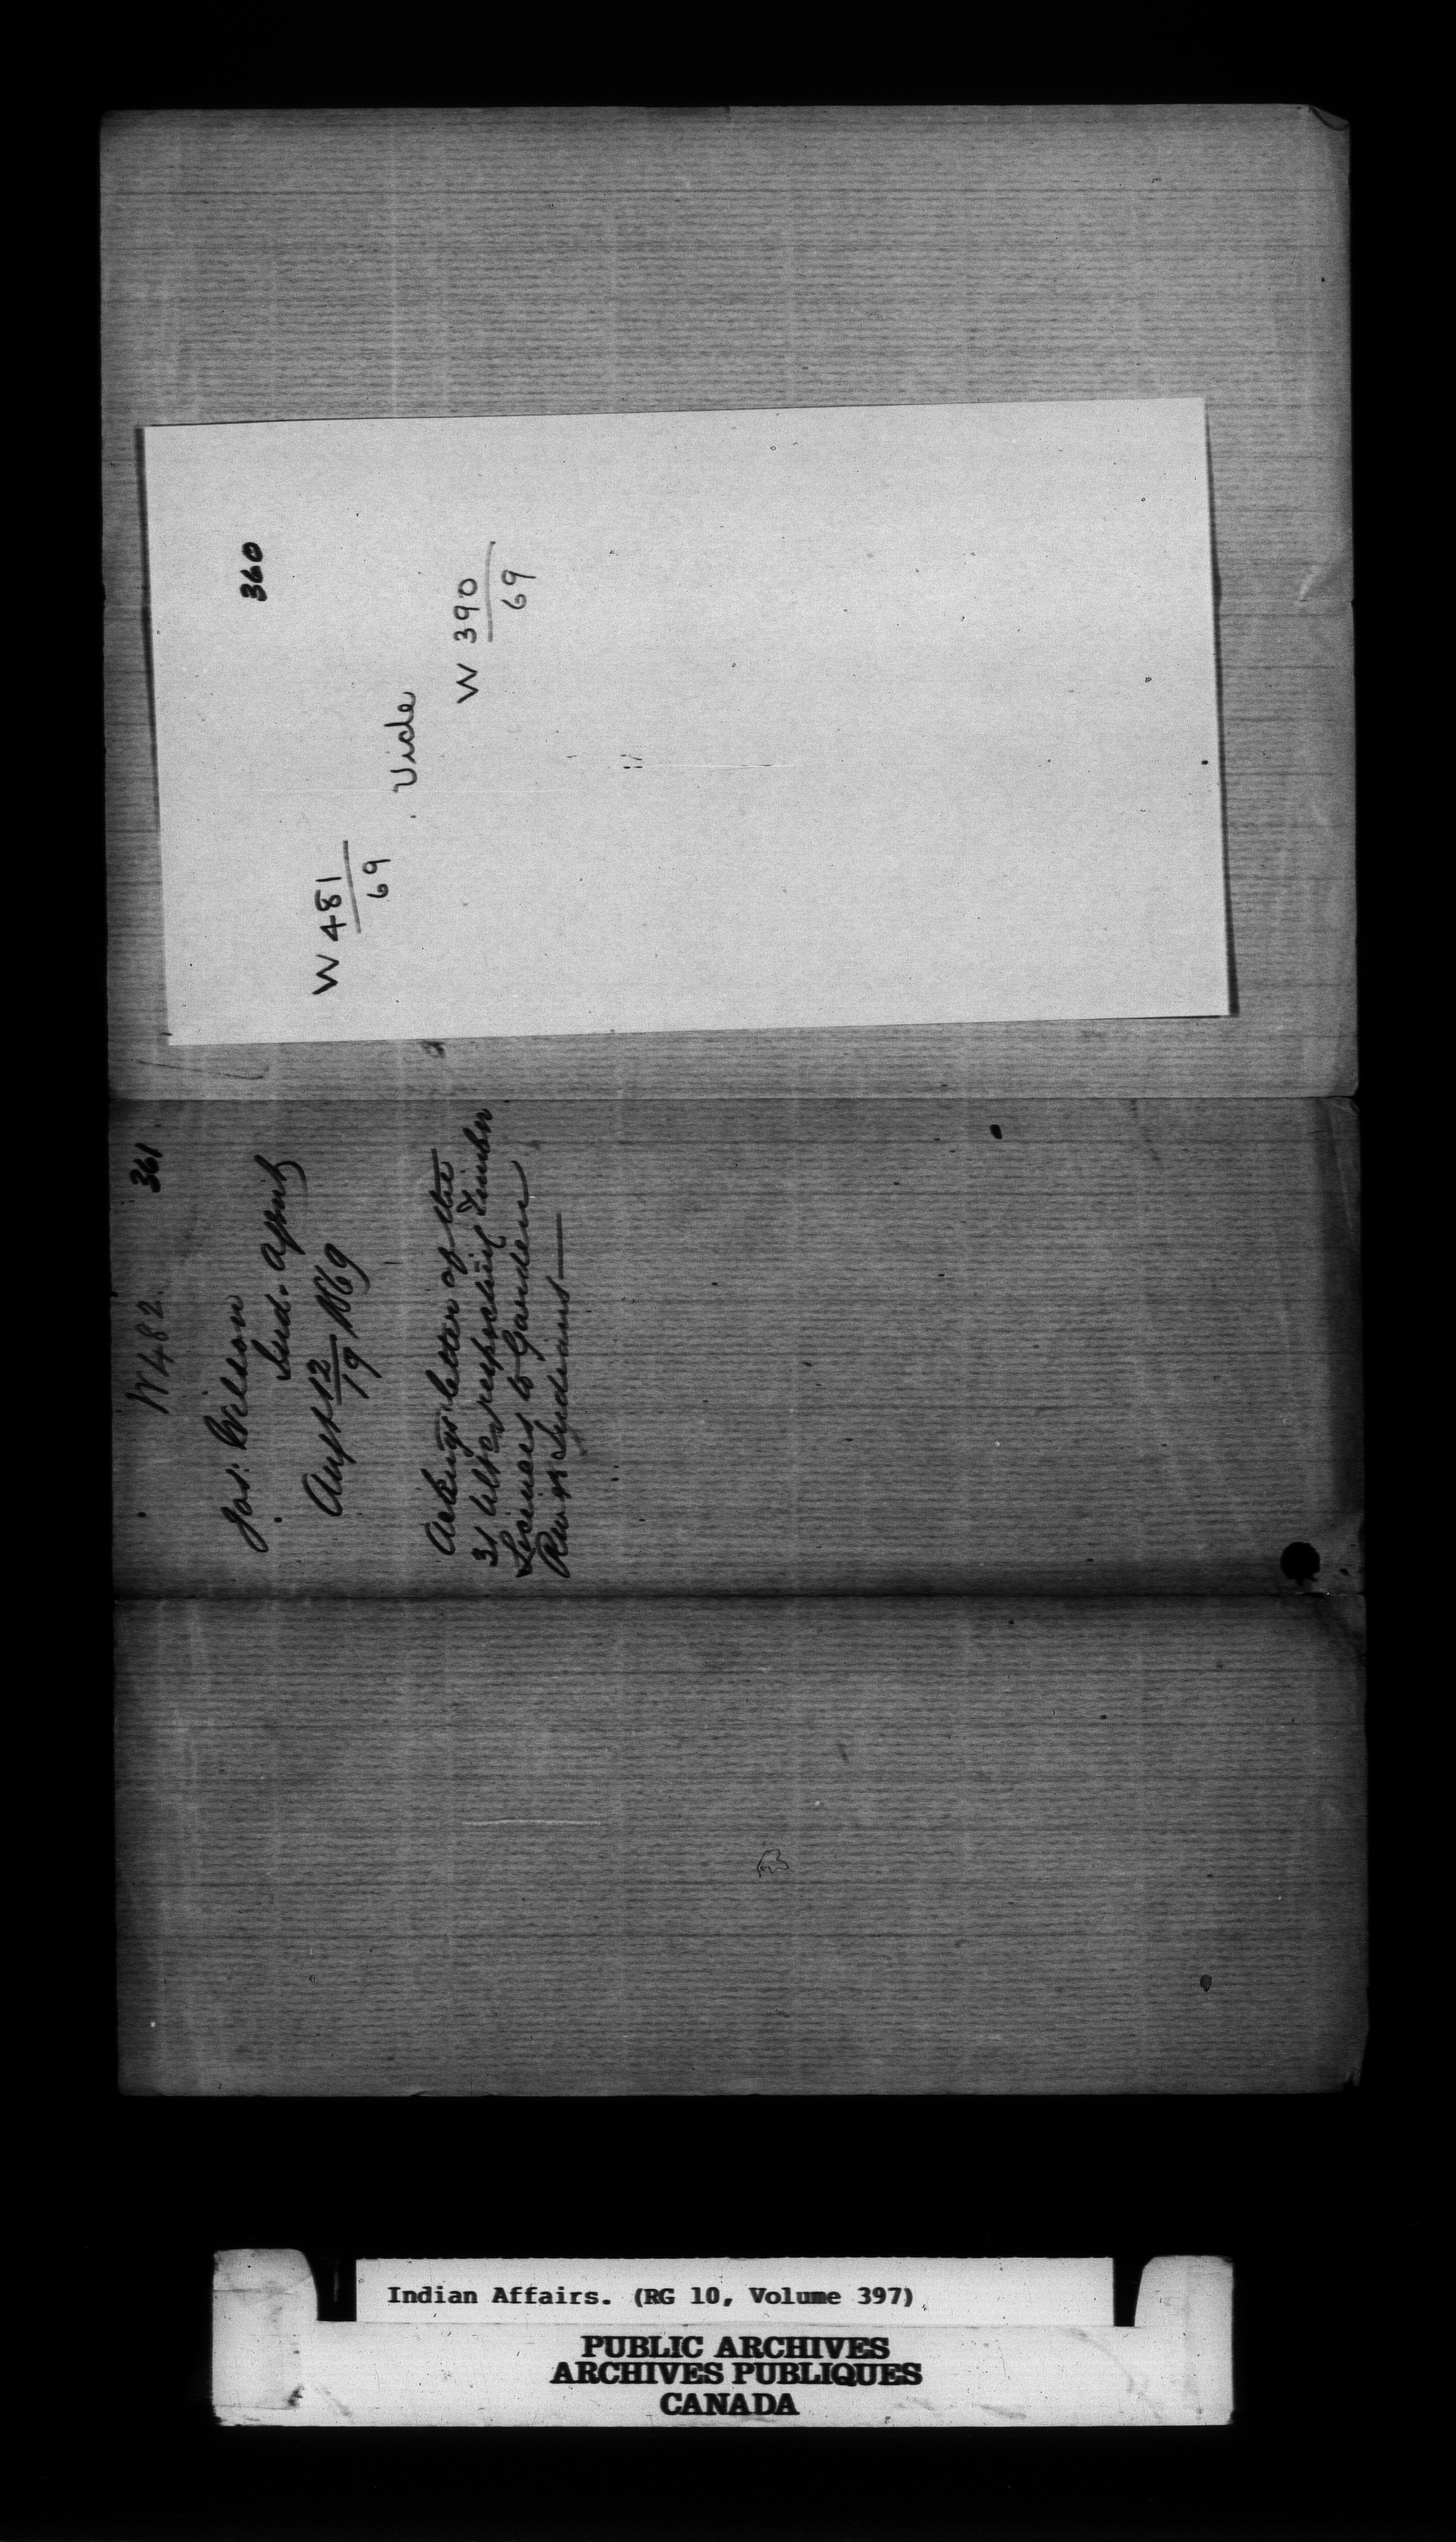 360
W 481
69
Vide
W 390
69
361
W482
Jos: Wilson
Ind. Agent
Augt 12/19 1869
Ackngs letter of the
31 Ulto respecting Timber
Licences to Garden
River Indians
Indian Affairs. (RG 10, Volume 397)
PUBLIC ARCHIVES
ARCHIVES PUBLIQUES
CANADA